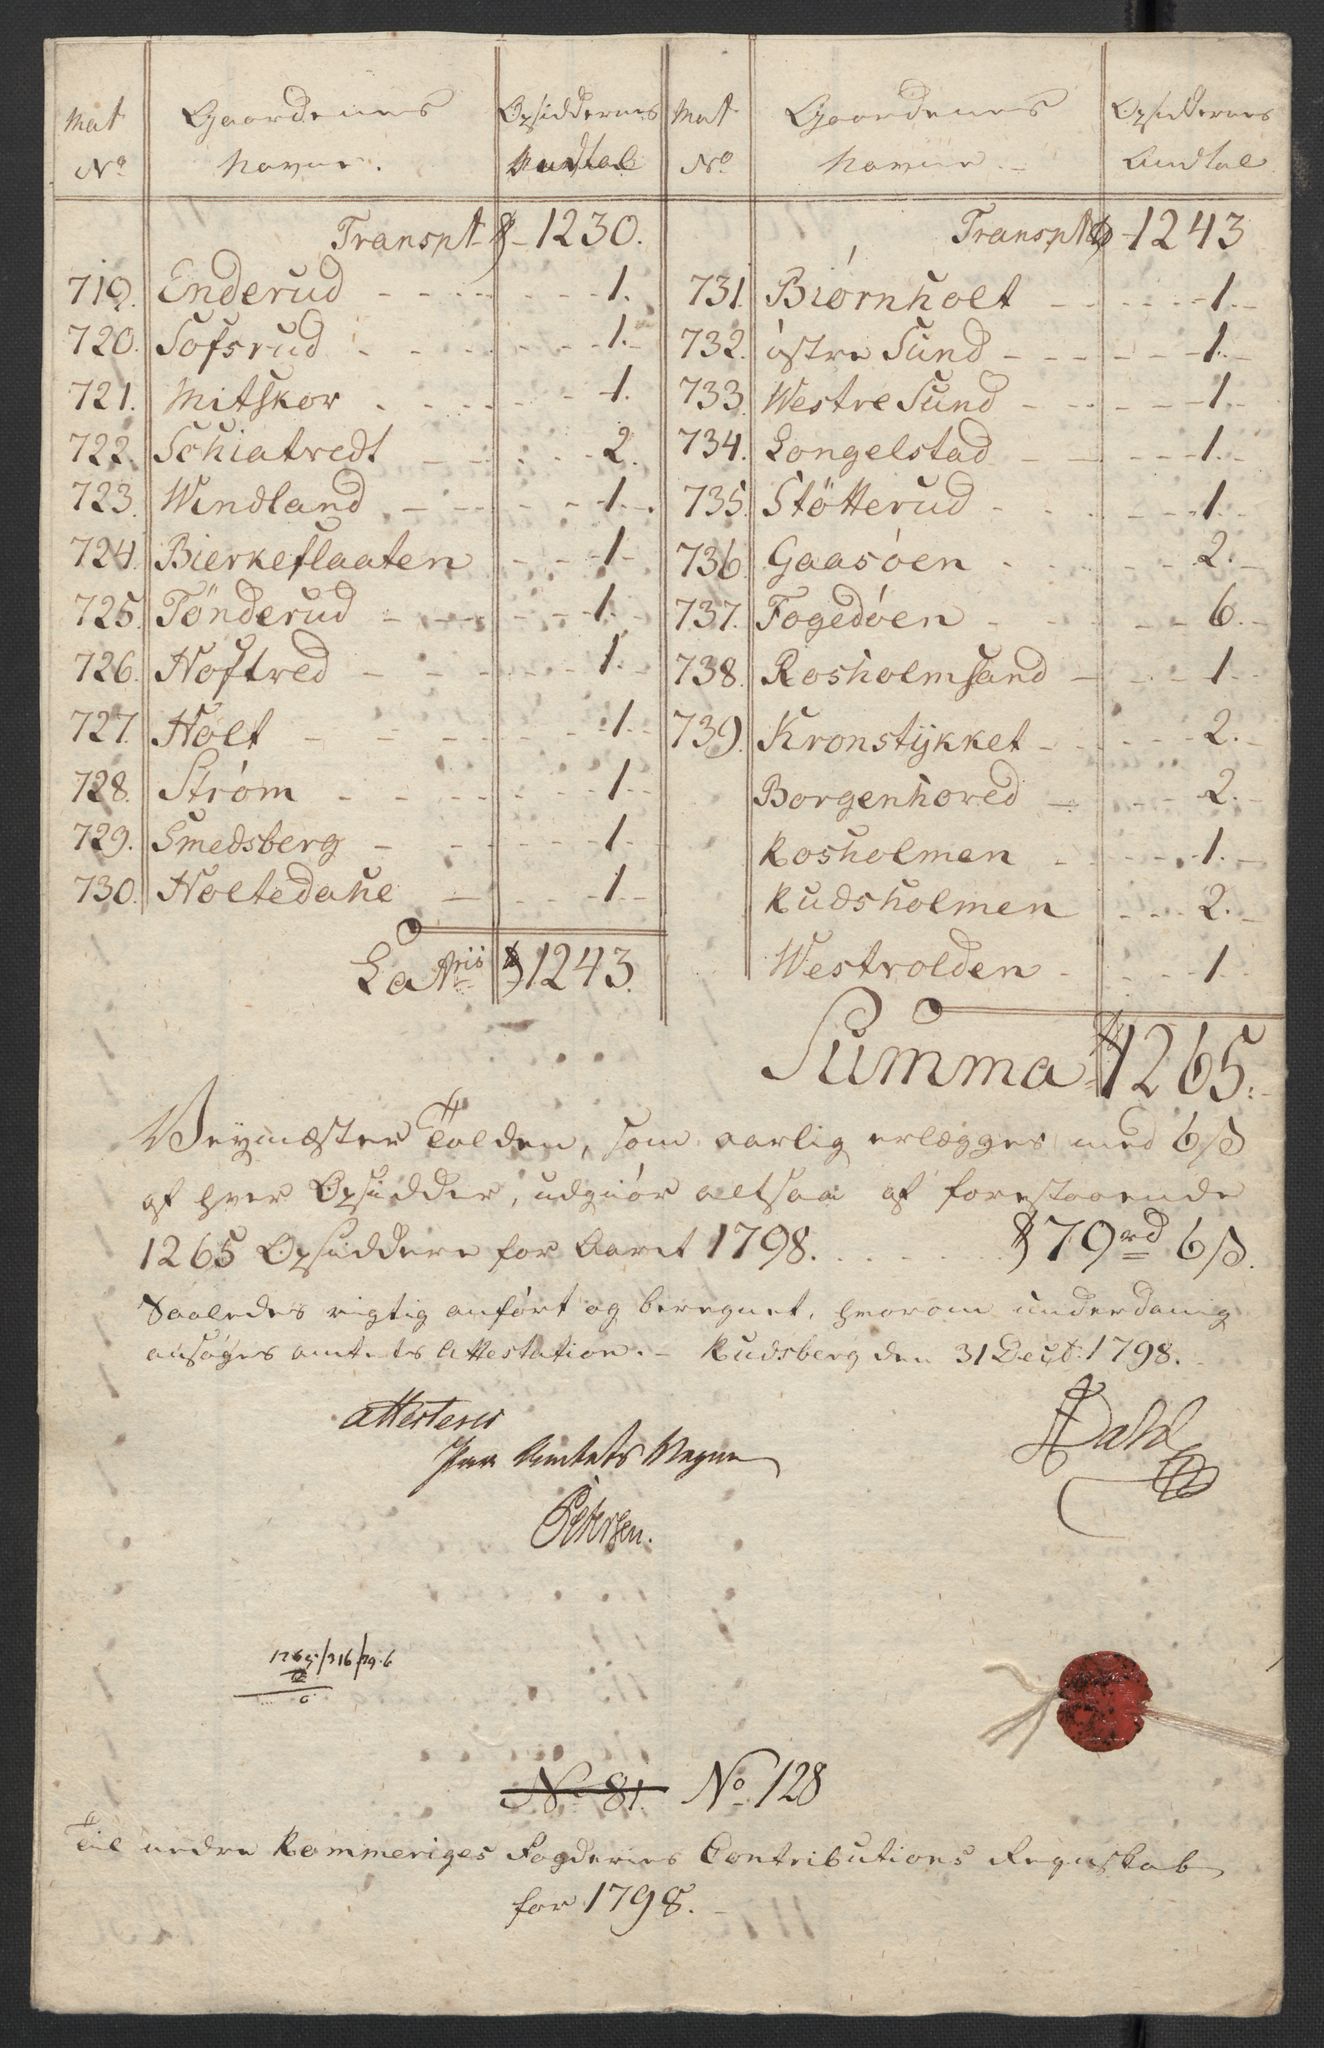 Mat No | Gaardenes Navne. | Opsiddernes Andtal
Transpt 1230.
719. Enderud 1.
720. Sofsrud 1.
721. Mitskor 1.
722. Schiatvedt 2.
723. Windland 1.
724. Bierkeslaaten 1
725. Tönderud 1.
726. Hoftved 1.
727. Holt 1
728. Strøm 1
729. Smedsberg 1
730. Holtedahl 1
Latris 1243.
Mat No | Gaardenes Navne | Opsiddernes Andtal
Transpt 1243
731. Biørnholt 1
732. østre Sund 1.
733. Westre Sund 1
734. Longelstad 1.
735. Støtterud 1
736. Gaasøen 2.
737. Fogedøen 6.
738. Rosholmsand 1
739. Kronstÿkket 2.
Borgenhoved 2.
Rosholmen 1.
Rudsholmen 2.
Westvolden 1
Summa 1265.
Veymester Tolden, som aarlig erlægges med 6 ß
af hver Opsidder, udgiör altsaa af forestaaende
1265 Opsiddere for Aaret 1798. 79 rd 6 ß.
Saaledes rigtig anført og beregnet, hvorom underdanig
ansøges amtets Attestation. – Rudsberg den 31 Decbr: 1798.
attesteres
Paa Amtets Vegne
Petersen.
Dahl
1265/316/79.6
No 81. No. 128
Til nedre Rommeriges Fogderies Contributions Regnskab
for 1798.